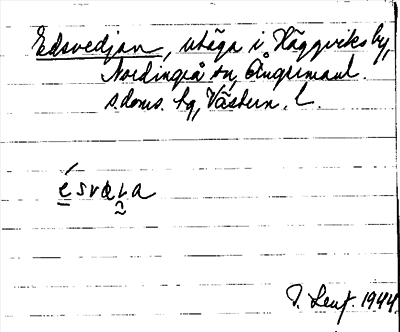 Edsvedjan, utäga i Häggviks by,
Nordingrå sn, Ångermanl.
s doms. hg, Västern. l.
ésvæɩa
1944